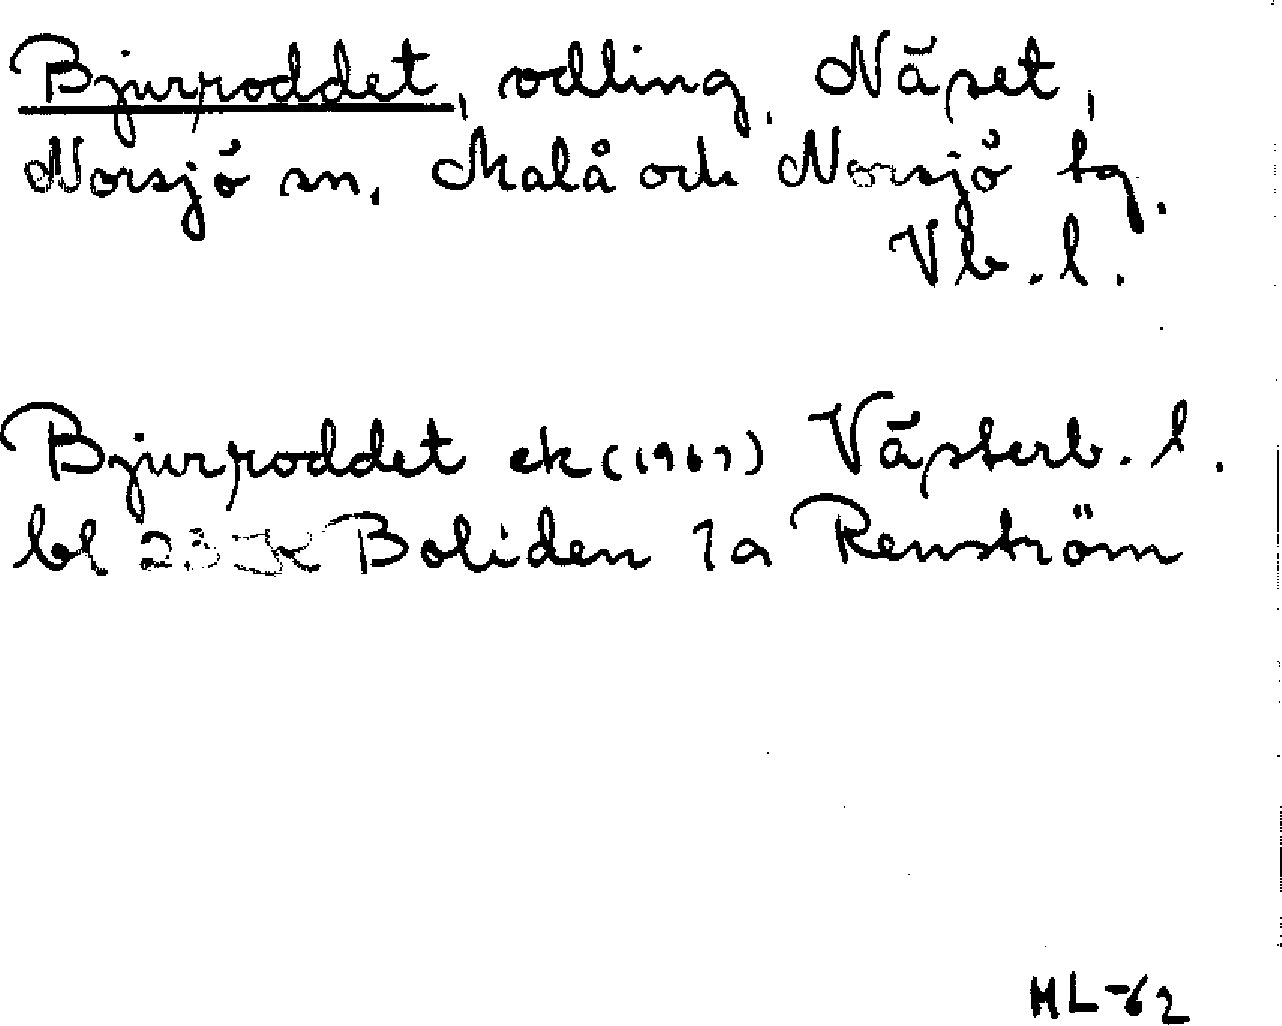 Bjurroddet, odling, Näset,
Norsjö sn, Malå och Norsjö tg.
Vb. l.
Bjurroddet ek (1967) Västerb. l.
bl 23 JK Boliden 1a Renström
ML-62